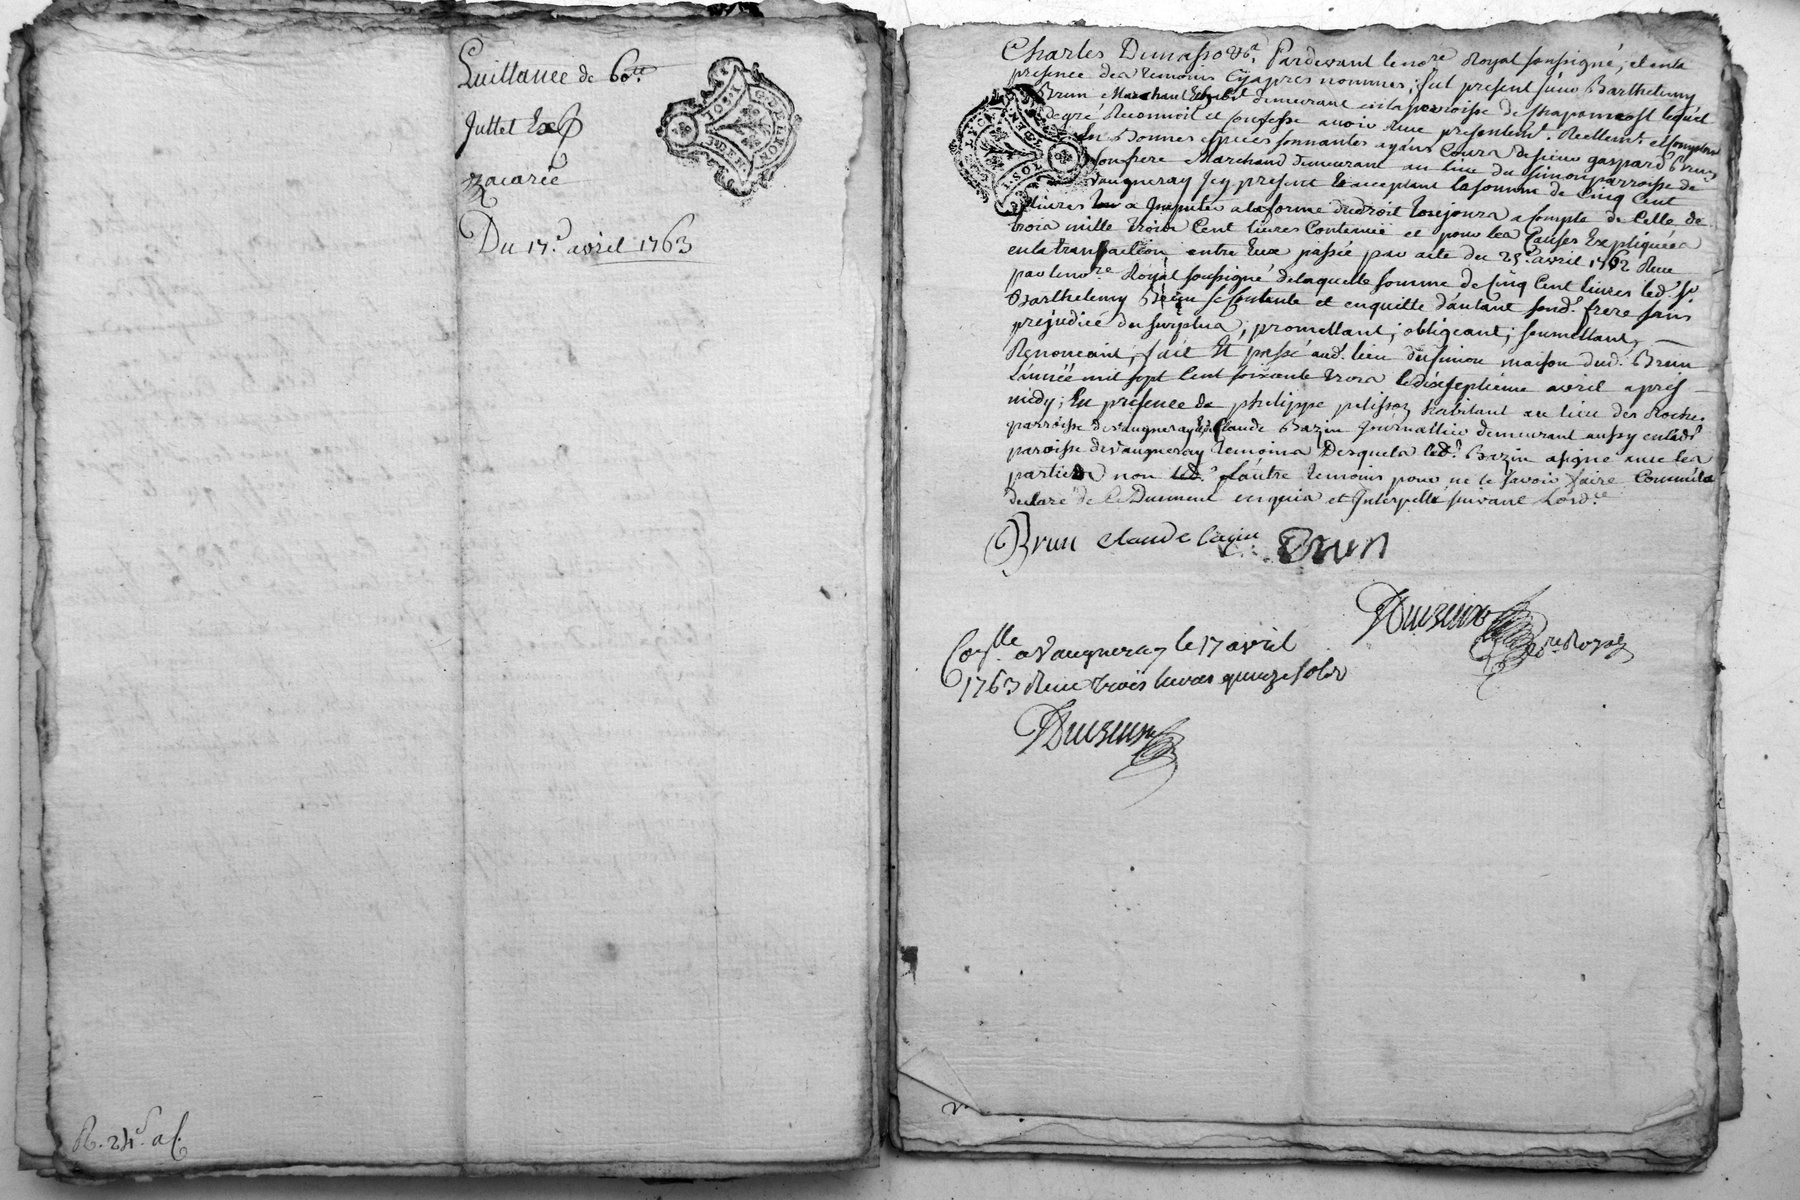 Quittance de 60ᵗᵗ
Juttet
zacarie
Du 17.ᵉ avril 1763
R. 24.ˢ
GEN. DE LYON
Pardevant le noʳᵉ Royal soussigné, et en la
presence des temoins cyapres nommés; fut present sieur Barthelemy
Brun Marchand demeurant en la parroisse de Grapomcost lequel
degré Reconnoit et confesse avoir Reue presentemᵗ. Reellemᵗ. et
En Bonnes especes sonnantes ayans Cours de sieur gaspard Brun
son frere Marchand demeurant au lieu du simon parroisse de
vaugneray Jcy present et acceptant la somme de Cinq Cent
livres a Jmputer a la forme du droit toujours a compte de Celle de
trois mille trois Cent livres Contenue et pour les Causes Expliquées
en la transaction entre Eux passée par acte du 25.ᵉ avril 1762 Reue
par le noʳᵉ Royal soussigné de laquelle somme de Cinq Cent livres ledᵗ. sʳ.
Barthelemy Brun se contente et en quitte d'autant sond.ᵗ frere sans
prejudice du surplus; promettant; obligeant; soumettant,
Renonçant; fait Et passé aud. lieu du simon maison dud. Brun
L'année mil sept Cent soixante trois le dixseptieme avril apres
midy; En presence de philippe pelisson habitant au lieu des Roche.
parroisse de vaugneray Et de Claude Bazin Journallier demeurant aussy en ladᵗᵉ
paroisse de vaugneray temoins Desquels led.ᵗ Bazin a signé avec les
parties non led.ᵗ L'autre temoins pour ne le savoir faire Comme il a
declaré de Ce Duement enquis et Jnterpellé suivant L'ordᶜᵉ
Brun Claude bazin Brun
noʳᵉ Royal
Conᵗˡˡᵉ a Vaugneray le 17 avril
1763 Reue trois livres quinze sols